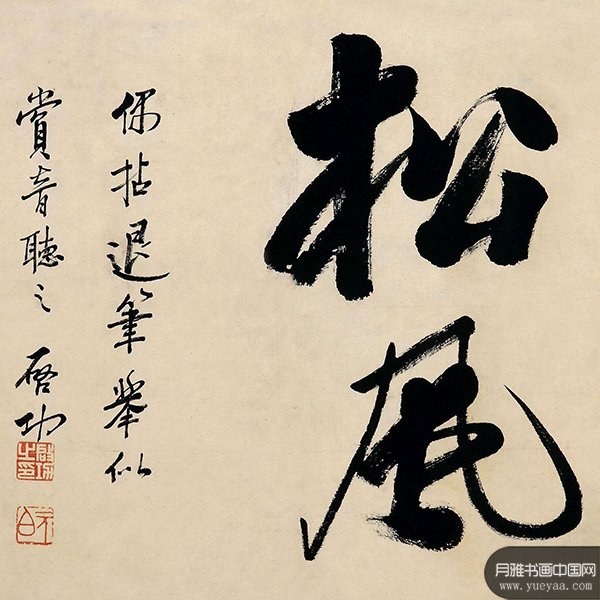 松風
偶拈退筆舉似
賞音聽之 启功
啓功之印
元白
月雅书画中国网
www.yueyaa.com